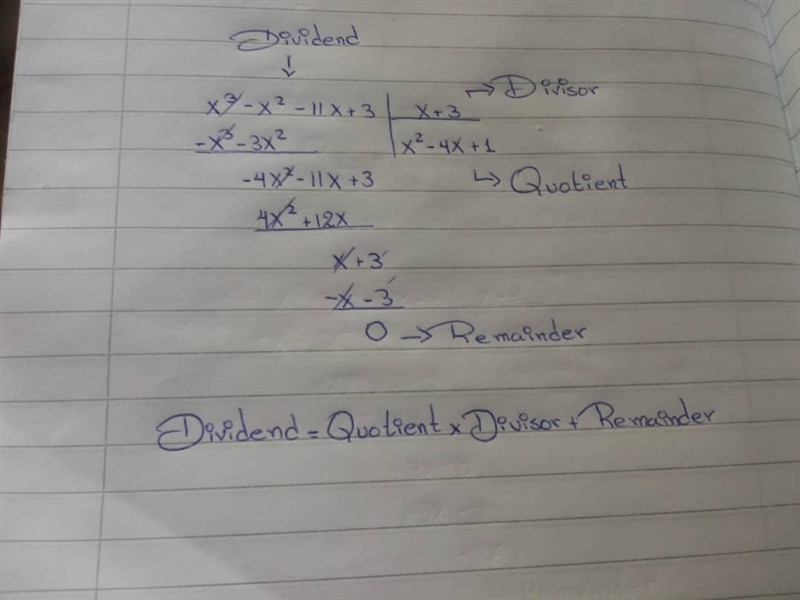 Dividend
↓
x³ - x² - 11x + 3 | x + 3 → Divisor
-x³ - 3x² | x² - 4x + 1
-4x² - 11x + 3 ↳ Quotient
4x² + 12x
x + 3
-x - 3
0 → Remainder
Dividend = Quotient x Divisor + Remainder